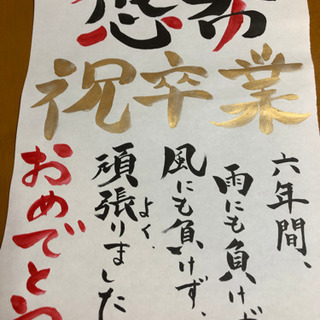 祝卒業
六年間、
雨にも負けず
風にも負けず、
よく
頑張りました
おめでとう